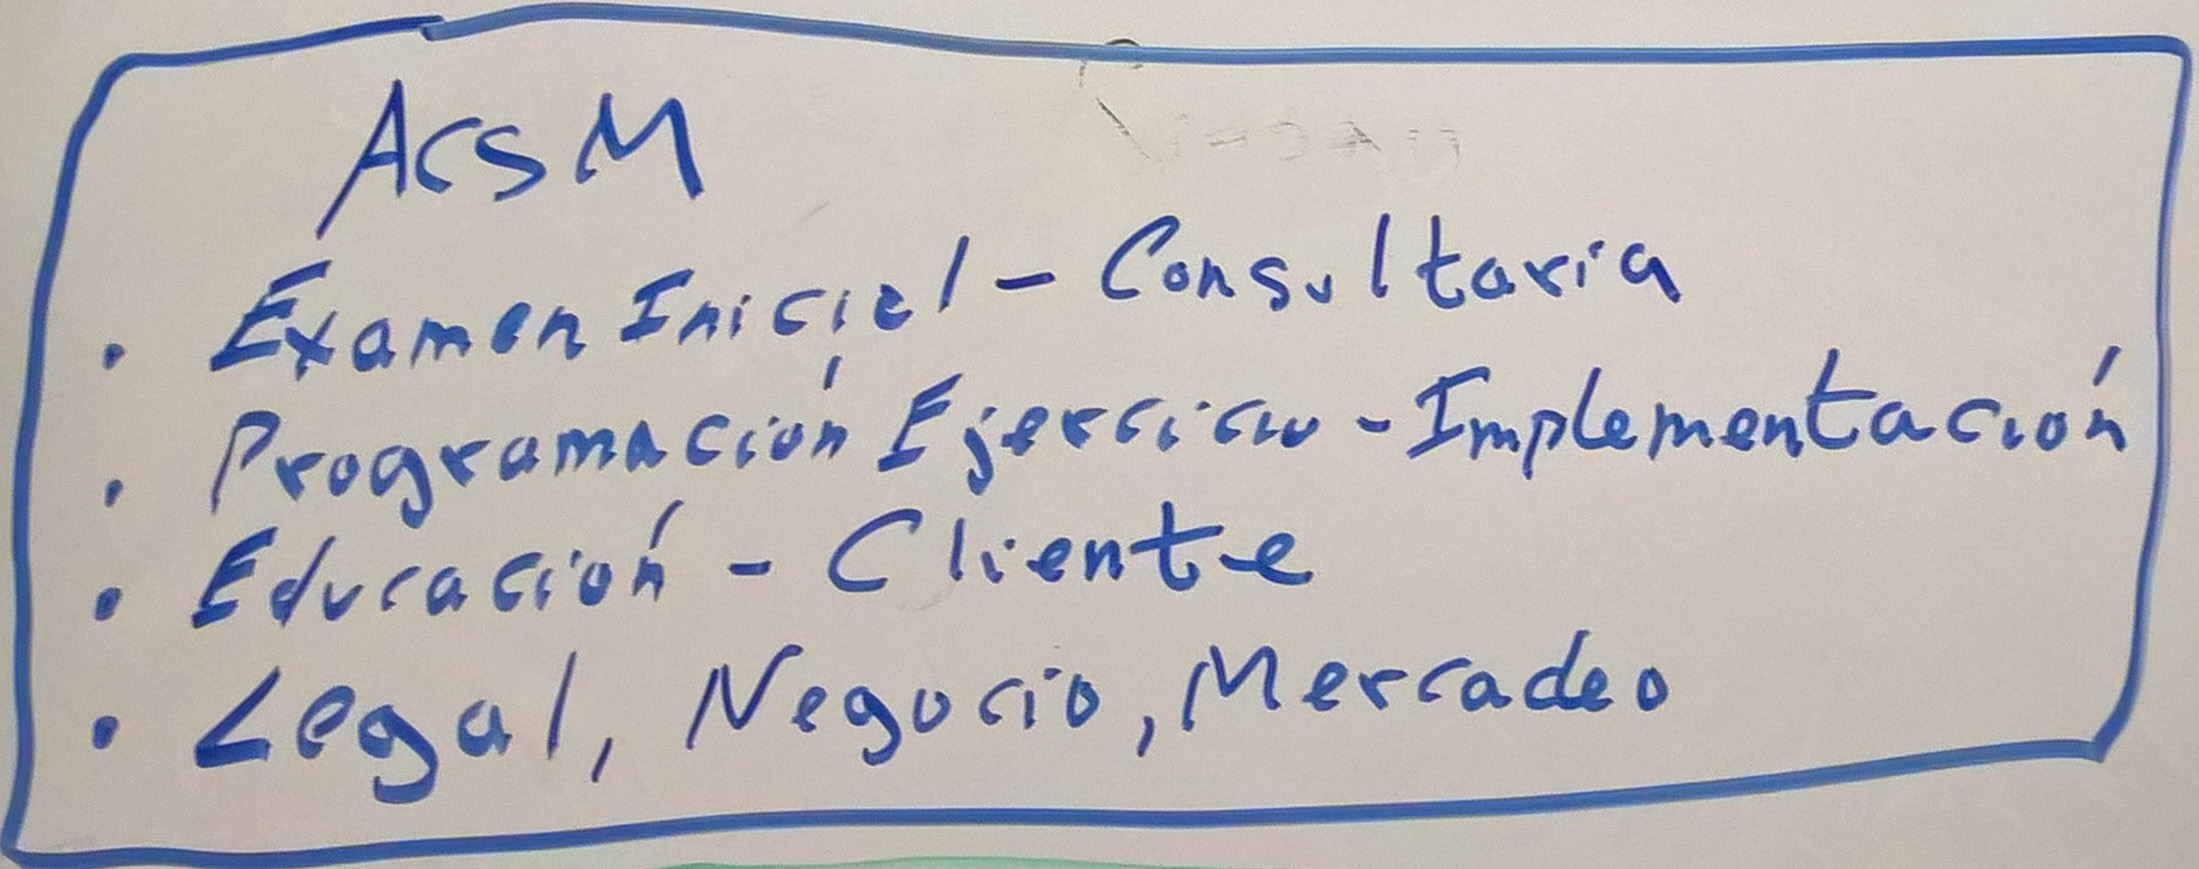 ACSM
• Examen Inicial - Consultaria
• Programación Ejercicio - Implementación
• Educación - Cliente
• Legal, Negocio, Mercadeo